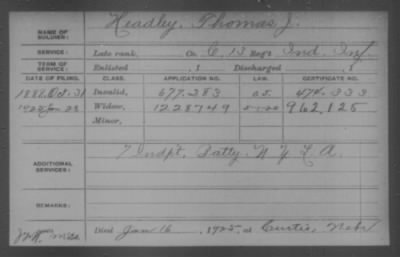 NAME OF SOLDIER: Headley, Thomas J.
SERVICE: Late rank, Co. C, 13 Reg't Ind. Inf.
TERM OF SERVICE: Enlisted , 1 Discharged , 1
DATE OF FILING. CLASS. APPLICATION NO. LAW. CERTIFICATE NO.
1888 Oct. 31 Invalid, 677.283 474.333
1925 Jan 28 Widow, 1228749 962.125
Minor,
ADDITIONAL SERVICES: 7 Indpt. Batty. N Y L A.
REMARKS:
Died Jan 16, 1925, at Curtis, Nebr